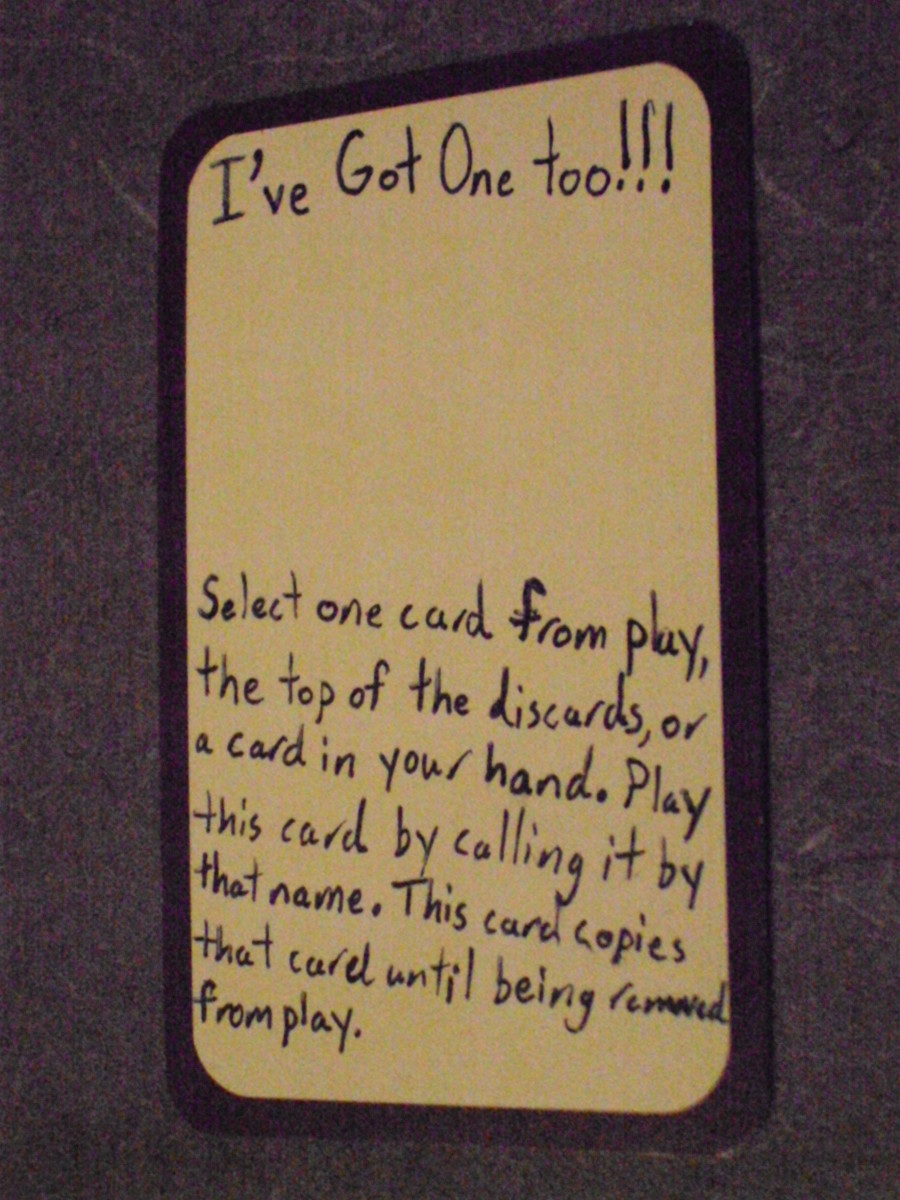 I've Got One too!!!
Select one card from play,
the top of the discards, or
a card in your hand. Play
this card by calling it by
that name. This card copies
that card until being removed
from play.